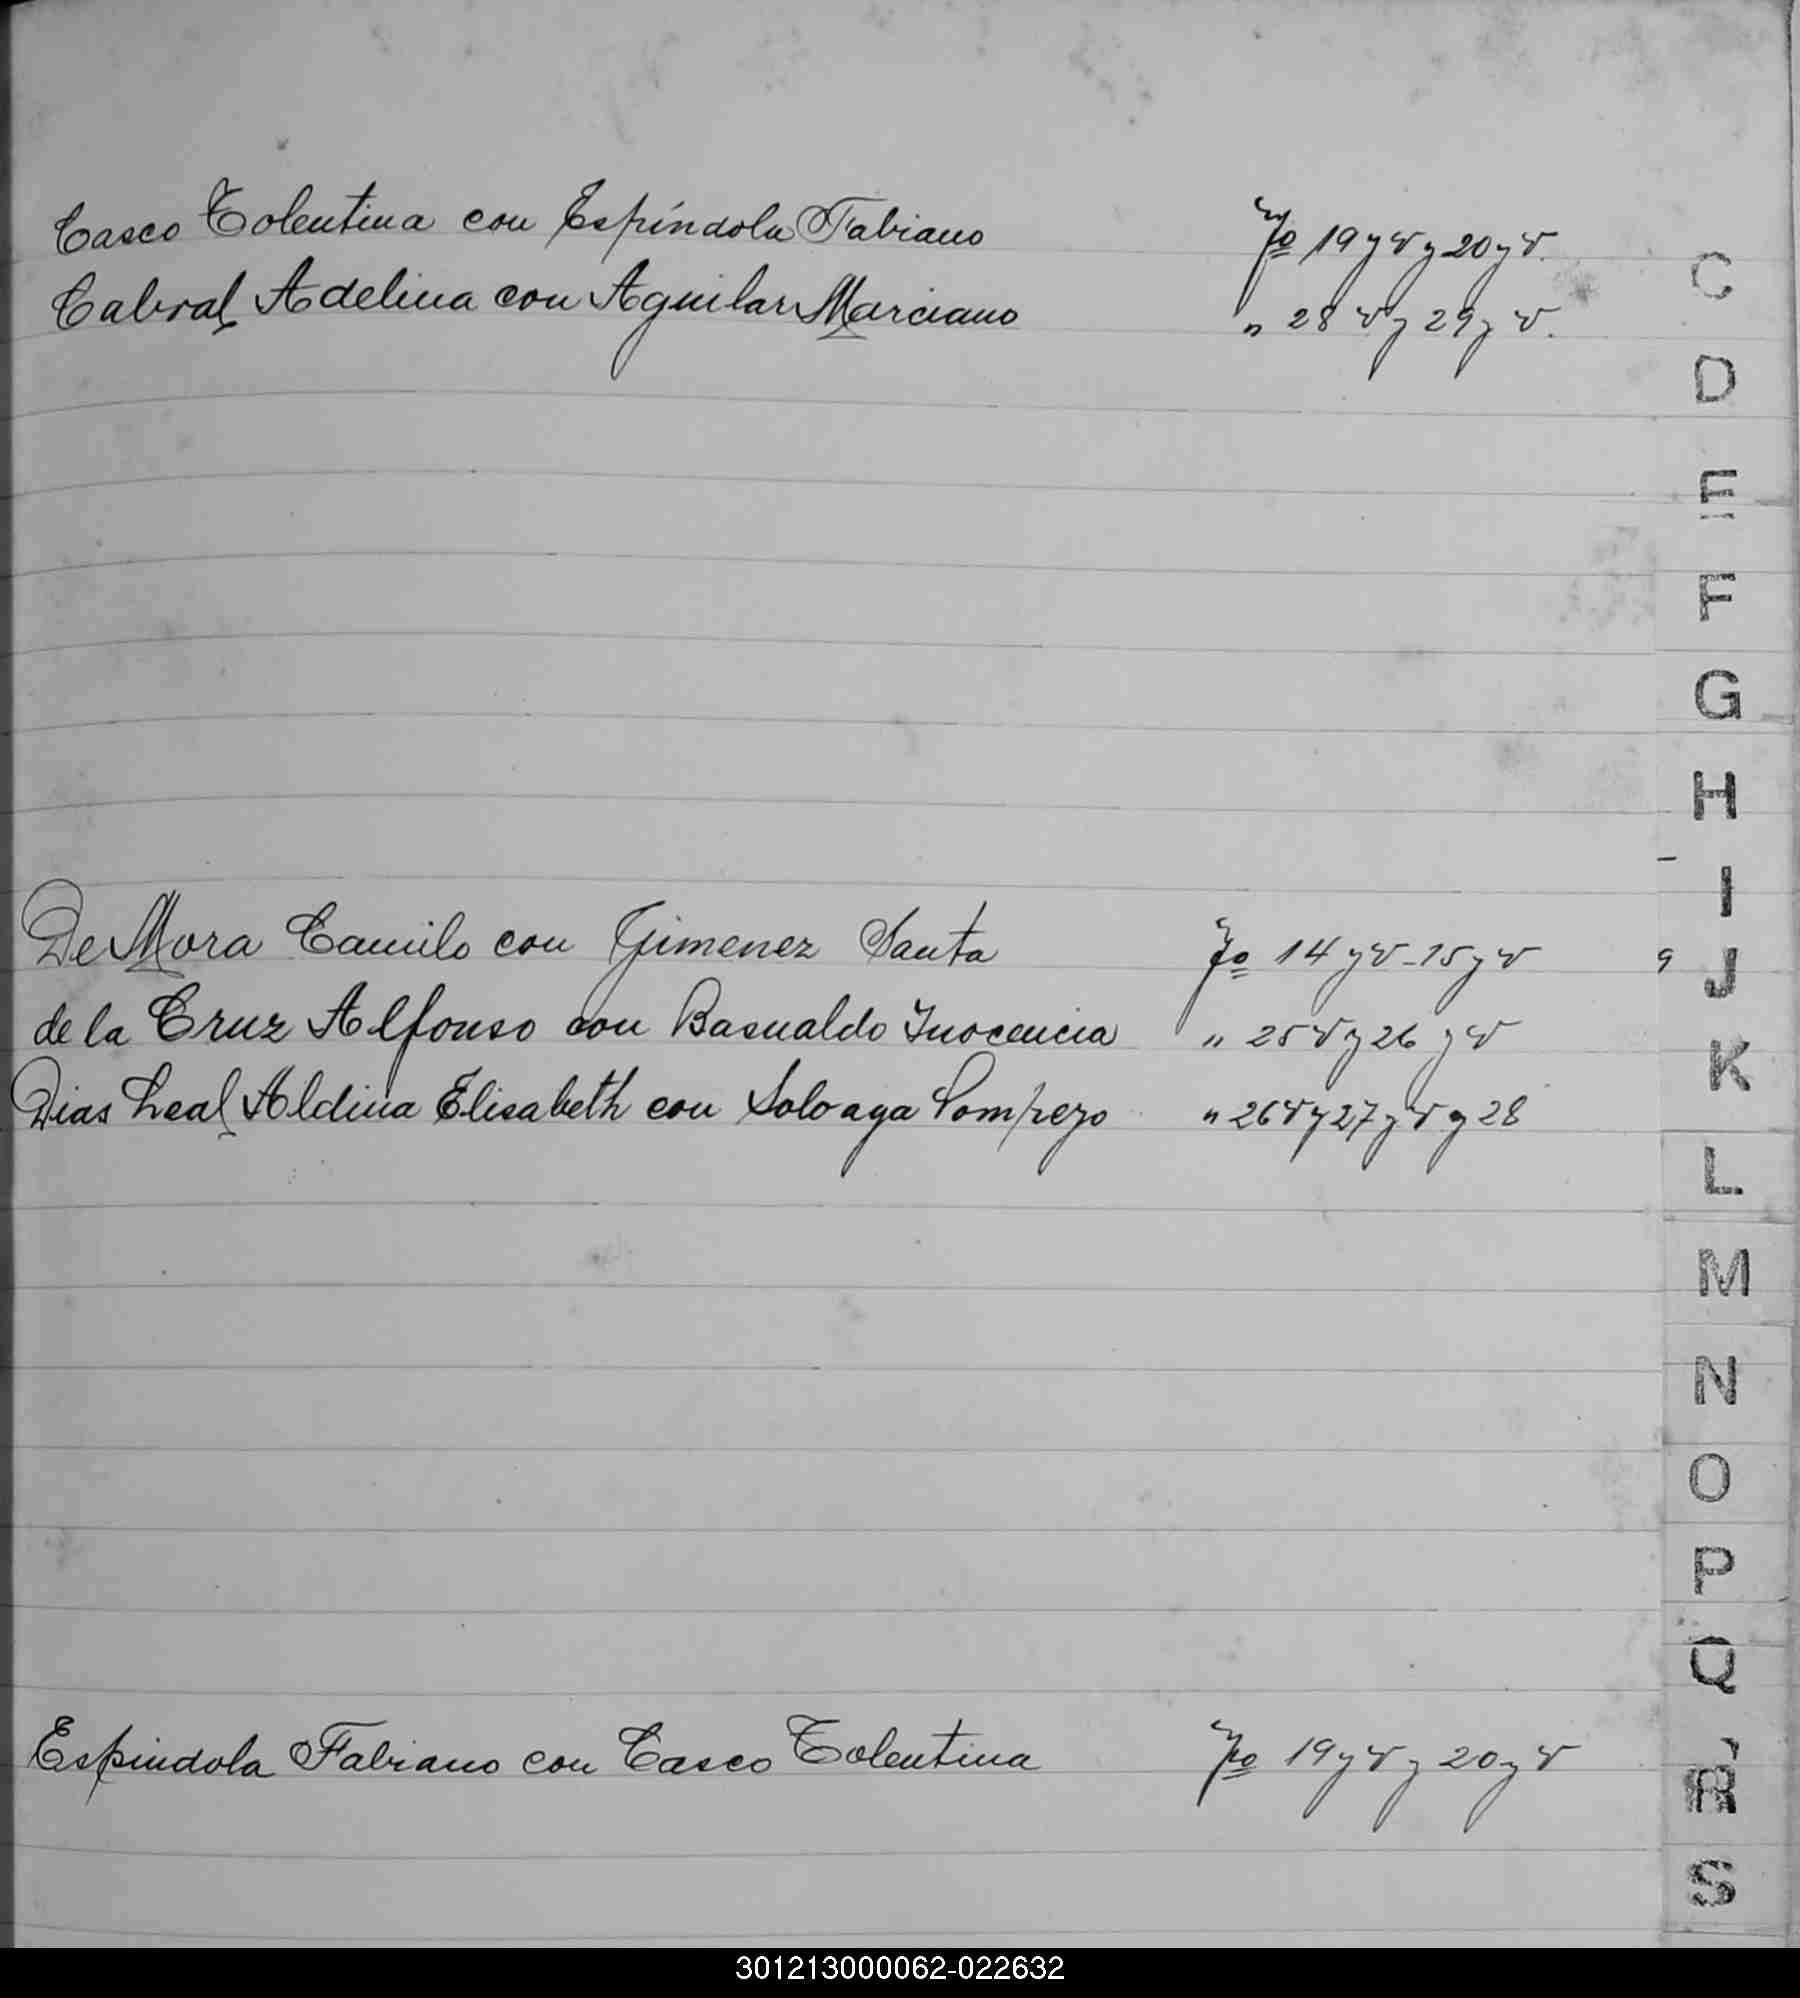 Casco Tolentina con Espíndola Fabiano Fo 19 y v y 20 y v.
Cabral Adelina con Aguilar Marciano " 28 v y 29 y v.
De Mora Camilo con Gimenez Santa Fo 14 y v - 15 y v
de la Cruz Alfonso con Basualdo Inocencia " 25 v y 26 y v
Dias Leal Aldina Elisabeth con Soloaga Pompeyo " 26 v y 27 y v y 28
Espindola Fabiano con Casco Tolentina Fo 19 y v y 20 y v
C
D
E
F
G
H
I
9 J
K
L
M
N
O
P
Q
R
S
301213000062-022632